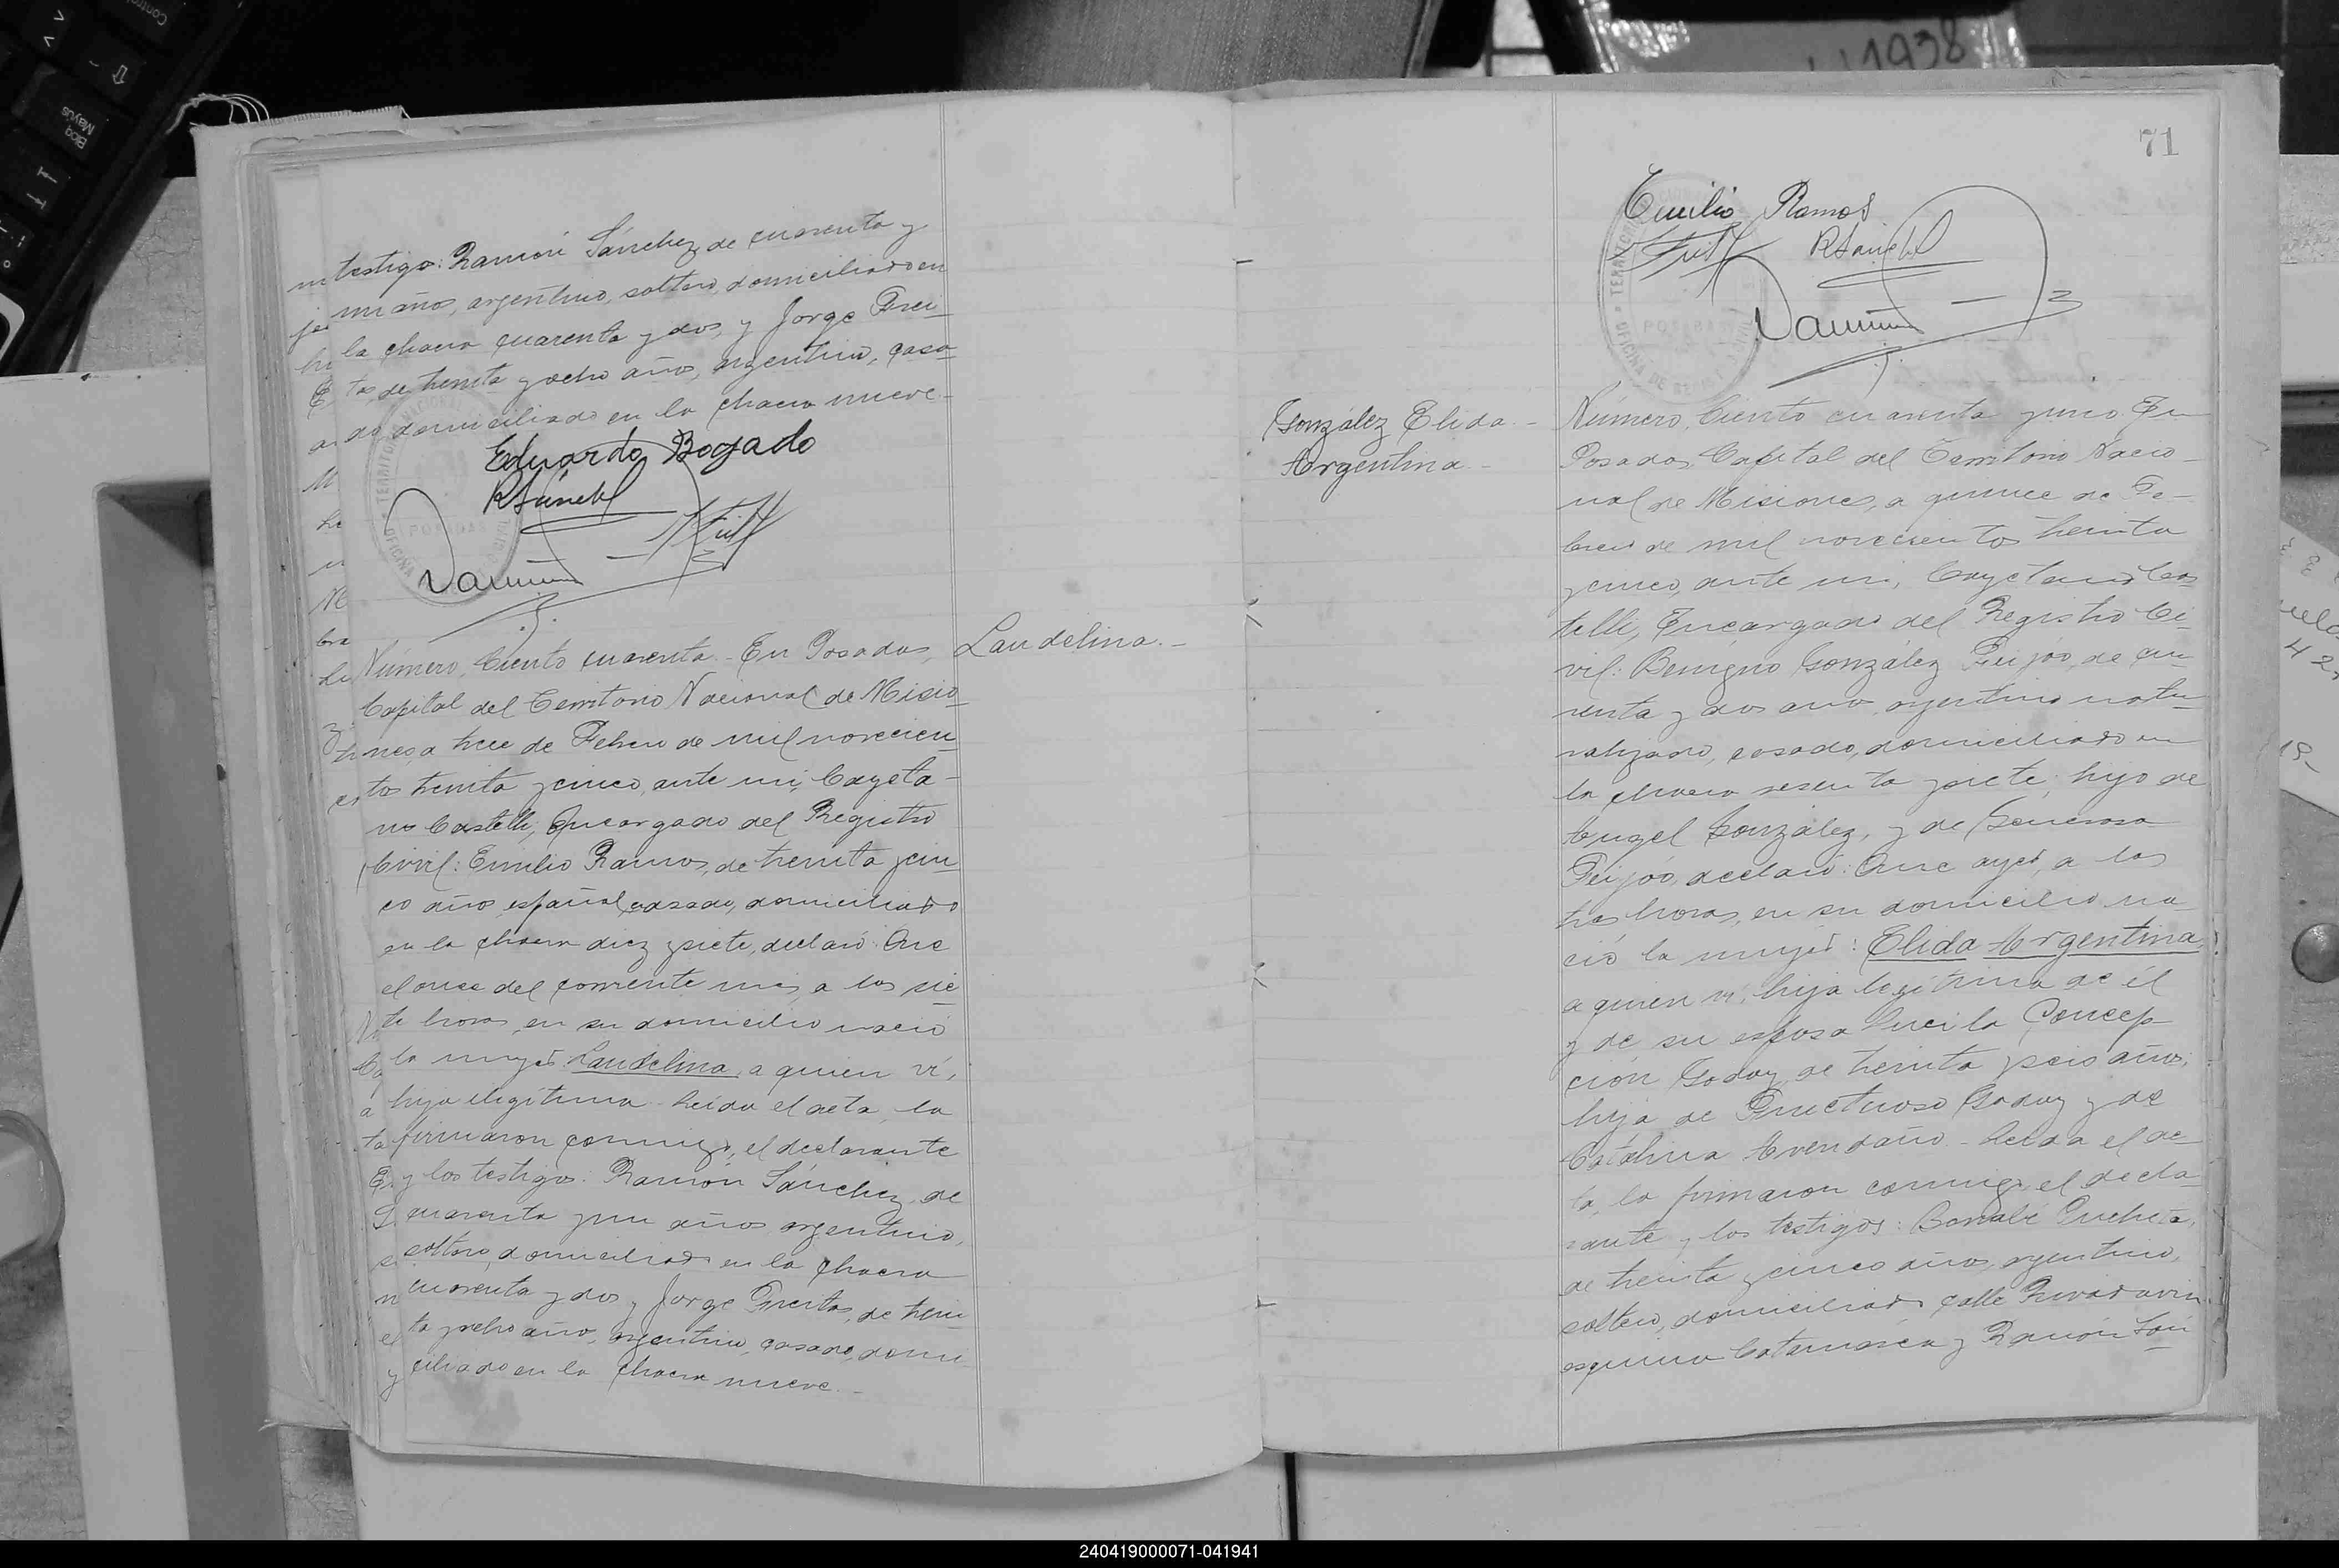 testigos: Ramón Sánchez, de cuarenta y
un años, argentino, soltero, domiciliado en
la chacra cuarenta y dos, y Jorge Frei-
tas, de treinta y ocho años, argentino, casa-
do domiciliado en la chacra nueve.-
Eduardo Bogado
RSánchez
Número, Ciento cuarenta.- En Posadas,
Capital del Territorio Nacional de Misio-
nes, a trece de Febrero de mil novecien-
tos treinta y cinco, ante mi, Cayeta-
no Castelli, Encargado del Registro
Civil: Emilio Ramos, de treinta y cin-
co años, español, casado, domiciliado
en la chacra diez y siete, declaró: Que
el once del corriente mes, a las sie-
te horas, en su domicilio nació
la mujer: Laudelina, a quien ví,
hija ilegítima. Leída el acta, la
firmaron conmigo, el declarante
y los testigos: Ramón Sánchez, de
cuarenta y un años, argentino,
soltero, domiciliado en la chacra
cuarenta y dos, y Jorge Freitas, de trein-
ta y ocho años, argentino, casado, domi-
ciliado en la chacra nueve.-
Laudelina.-
71
Emilio Ramos
RSánchez
González Elida
Argentina.-
Número, Ciento cuarenta y uno. En
Posadas, Capital del Territorio Nacio-
nal de Misiones, a quince de Fe-
brero de mil novecientos treinta
y cinco, ante mi, Cayetano Cas-
telli, Encargado del Registro Ci-
vil: Benigno González Feijóo, de cua-
renta y dos años, argentino natu-
ralizado, casado, domiciliado en
la chacra sesenta y siete, hijo de
Angel González, y de Generosa
Feijóo, declaró: Que ayer, a las
tres horas, en su domicilio na-
ció la mujer: Elida Argentina,
a quien ví, hija legítima de él
y de su esposa Lucila Concep-
ción Godoy, de treinta y seis años,
hija de Fructuoso Godoy y de
Catalina Avendaño.- Leída el ac-
ta, la firmaron conmigo, el decla-
rante y los testigos: Bernabé
de treinta y cinco años, argentino,
soltero, domiciliado calle Rivadavia
esquina Catamarca y Ramón Sán-
240419000071-041941